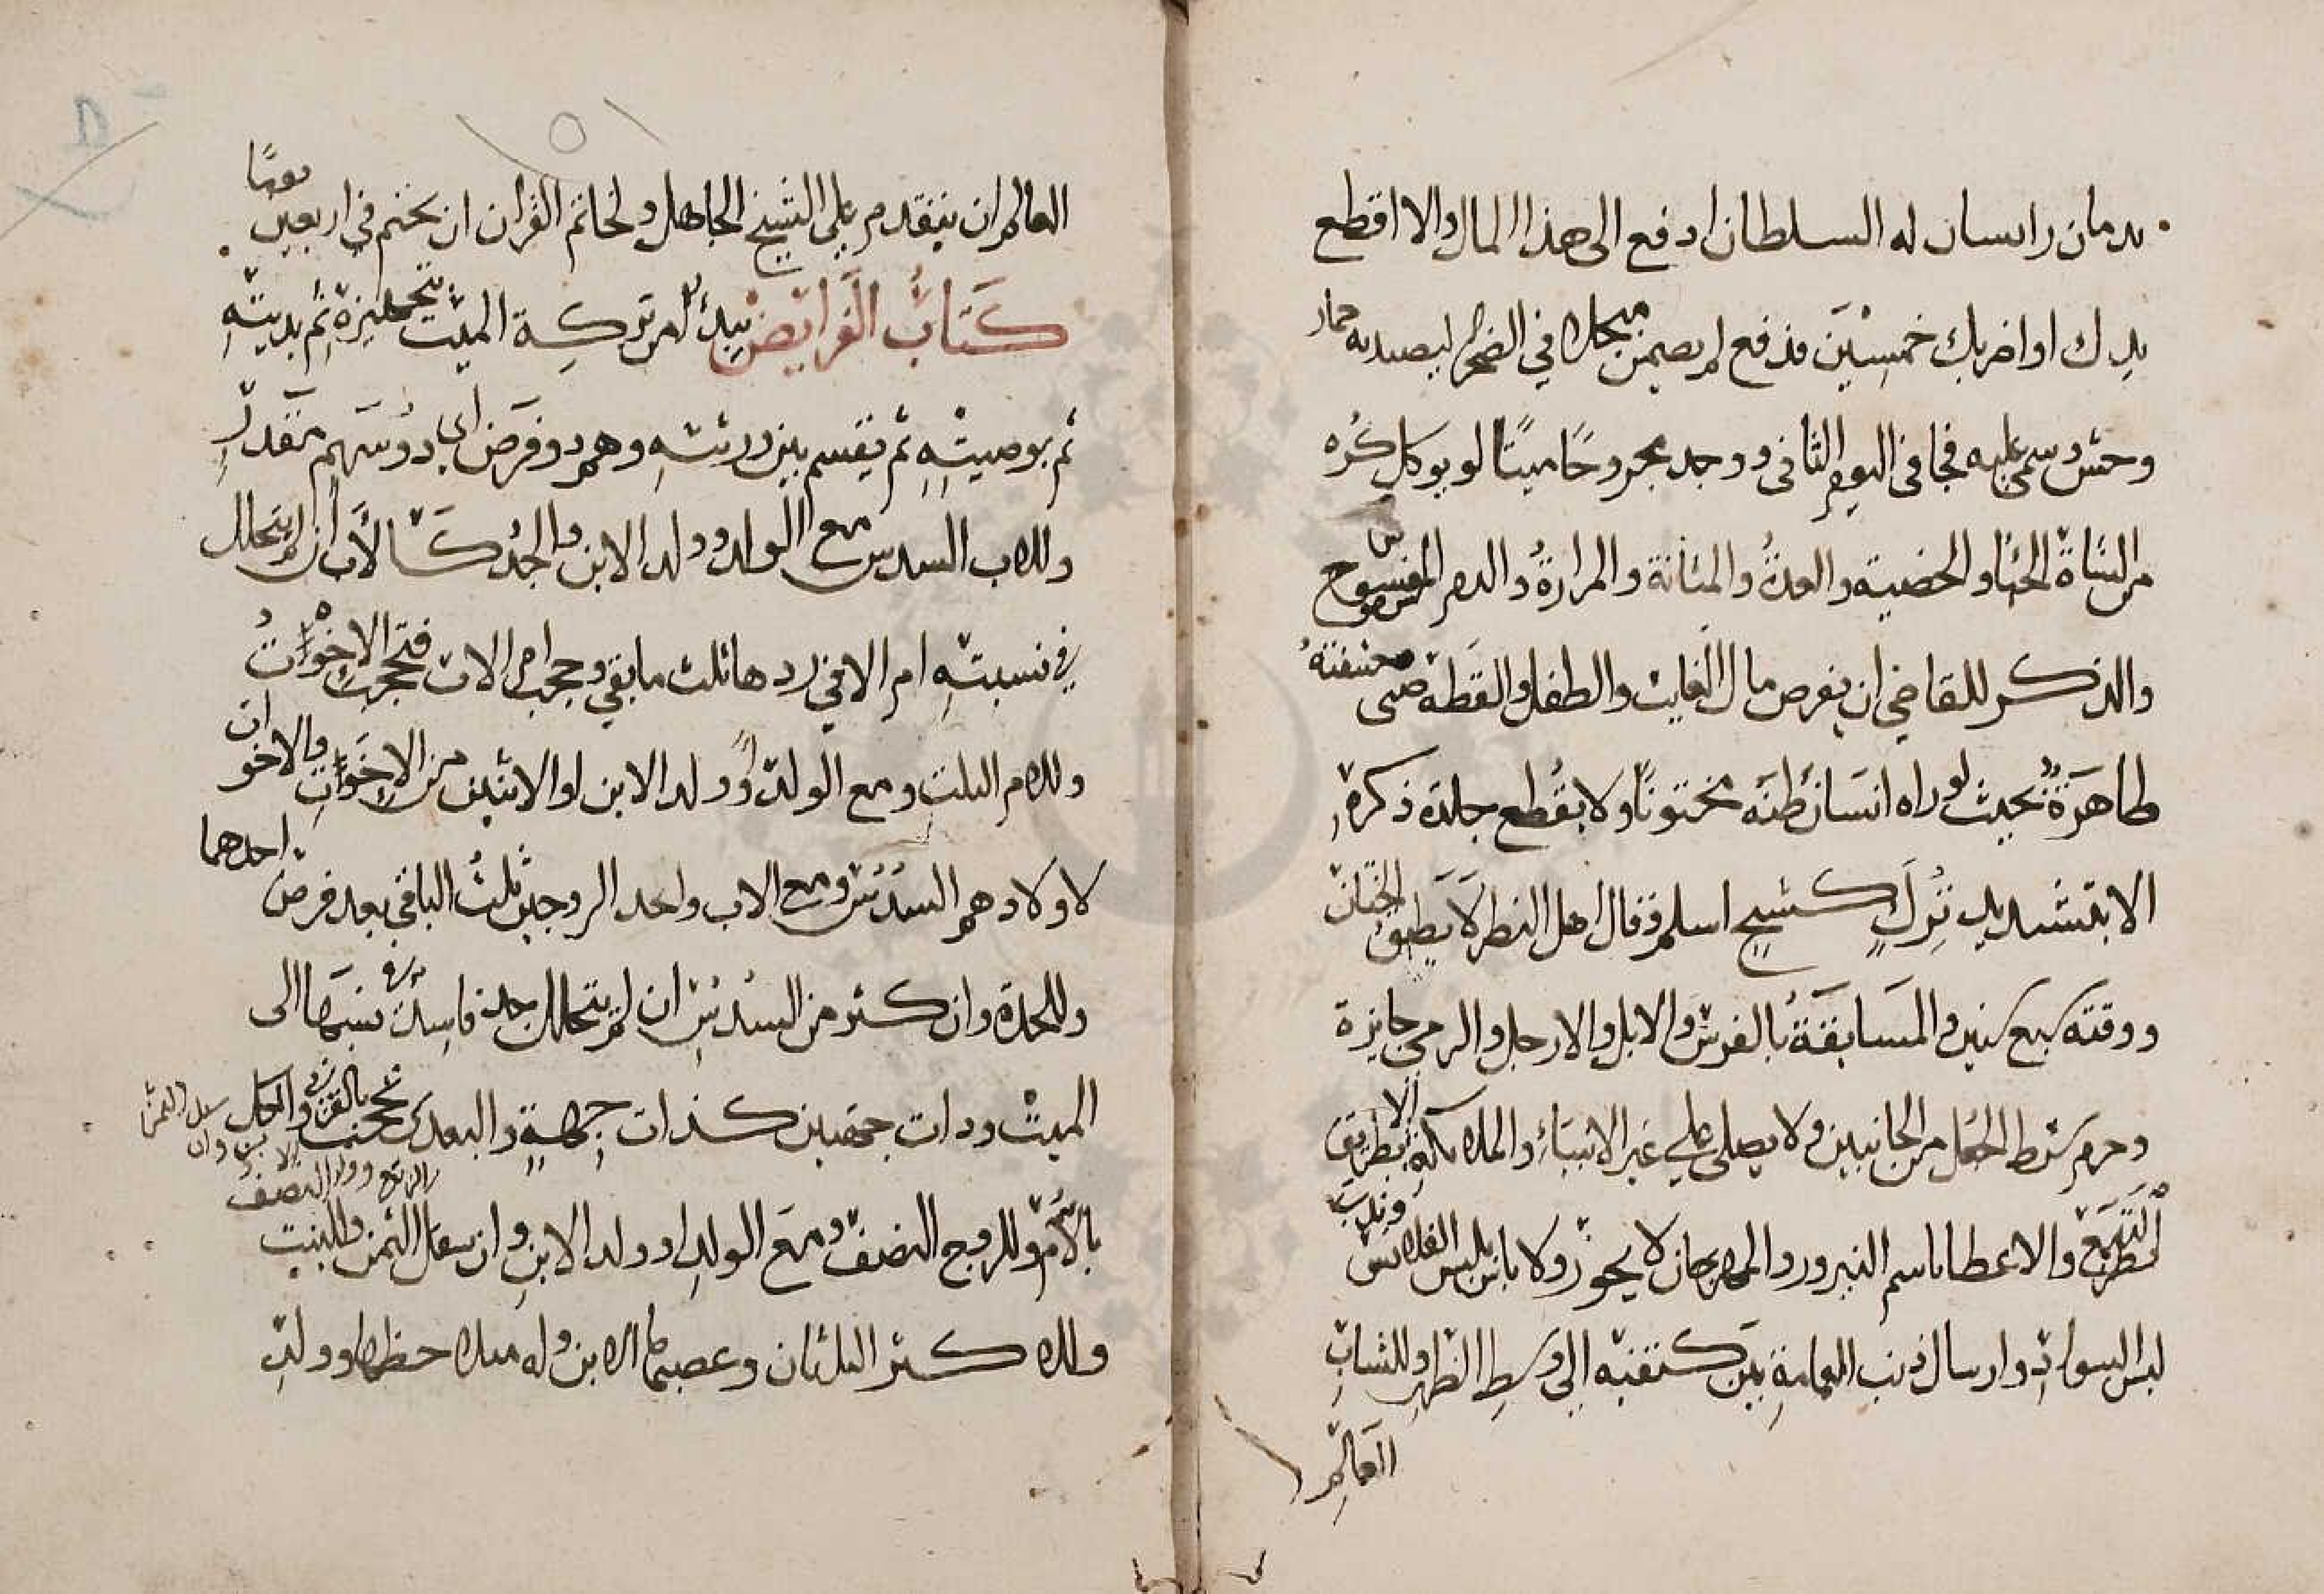 بدمان رانسان له السلطان ادفع الى هذا المال والا اقطع
يدك او اضربك خمسين فدفع لم يضمن منجلا في الصحرا ليصيد به حمار
وحش وسمى عليه فجا في اليوم الثاني ووجد مجروحا ميتا لو يوكل كره
من الشاة الحيا والخصية والغدة والمثانة والمرارة والدم المسفوح
والذكر للقاضي ان يقرض مال الغايب والطفل والقطة صبى حشفته
ظاهرة بحيث لو راه انسان ظنه مختونا ولا يقطع جلدة ذكره
الا بتشديد ترك كشيخ اسلم وقال اهل النظر لا يطيق الختان
ووقته سبع سنين والمسابقة بالفرس والابل والارجل والرمي جايزة
وحرم شرط الجعل من الجانبين ولا يصلى على غير الانبياء والملايكة الا بطريق
التبع والاعطا باسم النيروز والمهرجان لا يجوز ولا باس بلبس القلانس وندب
لبس السواد وارسال ذنب العمامة بين كتفيه الى وسط الظهر وللشاب
العالم
العالم ان يتقدم على الشيخ الجاهل ولخاتم القران ان يختم في اربعين يوما
كتاب الفرايض يبدا من تركة الميت بتجهيزه ثم بدينه
ثم بوصيته ثم يقسم بين ورثته وهم ذو فرض اى ذو سهم مقدر
وللاب السدس مع الولد وولد الابن والجد كالاب ان لم يتخلل
في نسبته ام الا في ردها ثلث ما بقي وحجب ام الاب فتحجب الاخوة
وللام الثلث ومع الولد او ولد الابن او الاثنين من الاخوات والاخوان
لا اولادهم السدس ومع الاب واحد الزوجين ثلث الباقي بعد فرض احدهما
وللجدة وان كثر من السدس ان لم يتخلل جد فاسد في نسبتها الى
الميت وذات جهتين كذات جهة والبعدى تحجب بالقربى والكل
بالام وللزوج النصف ومع الولد او ولد الابن وان سفل الثمن وللبنت النصف
وللاكثر الثلثان وعصبها الابن وله مثلا حظها وولد